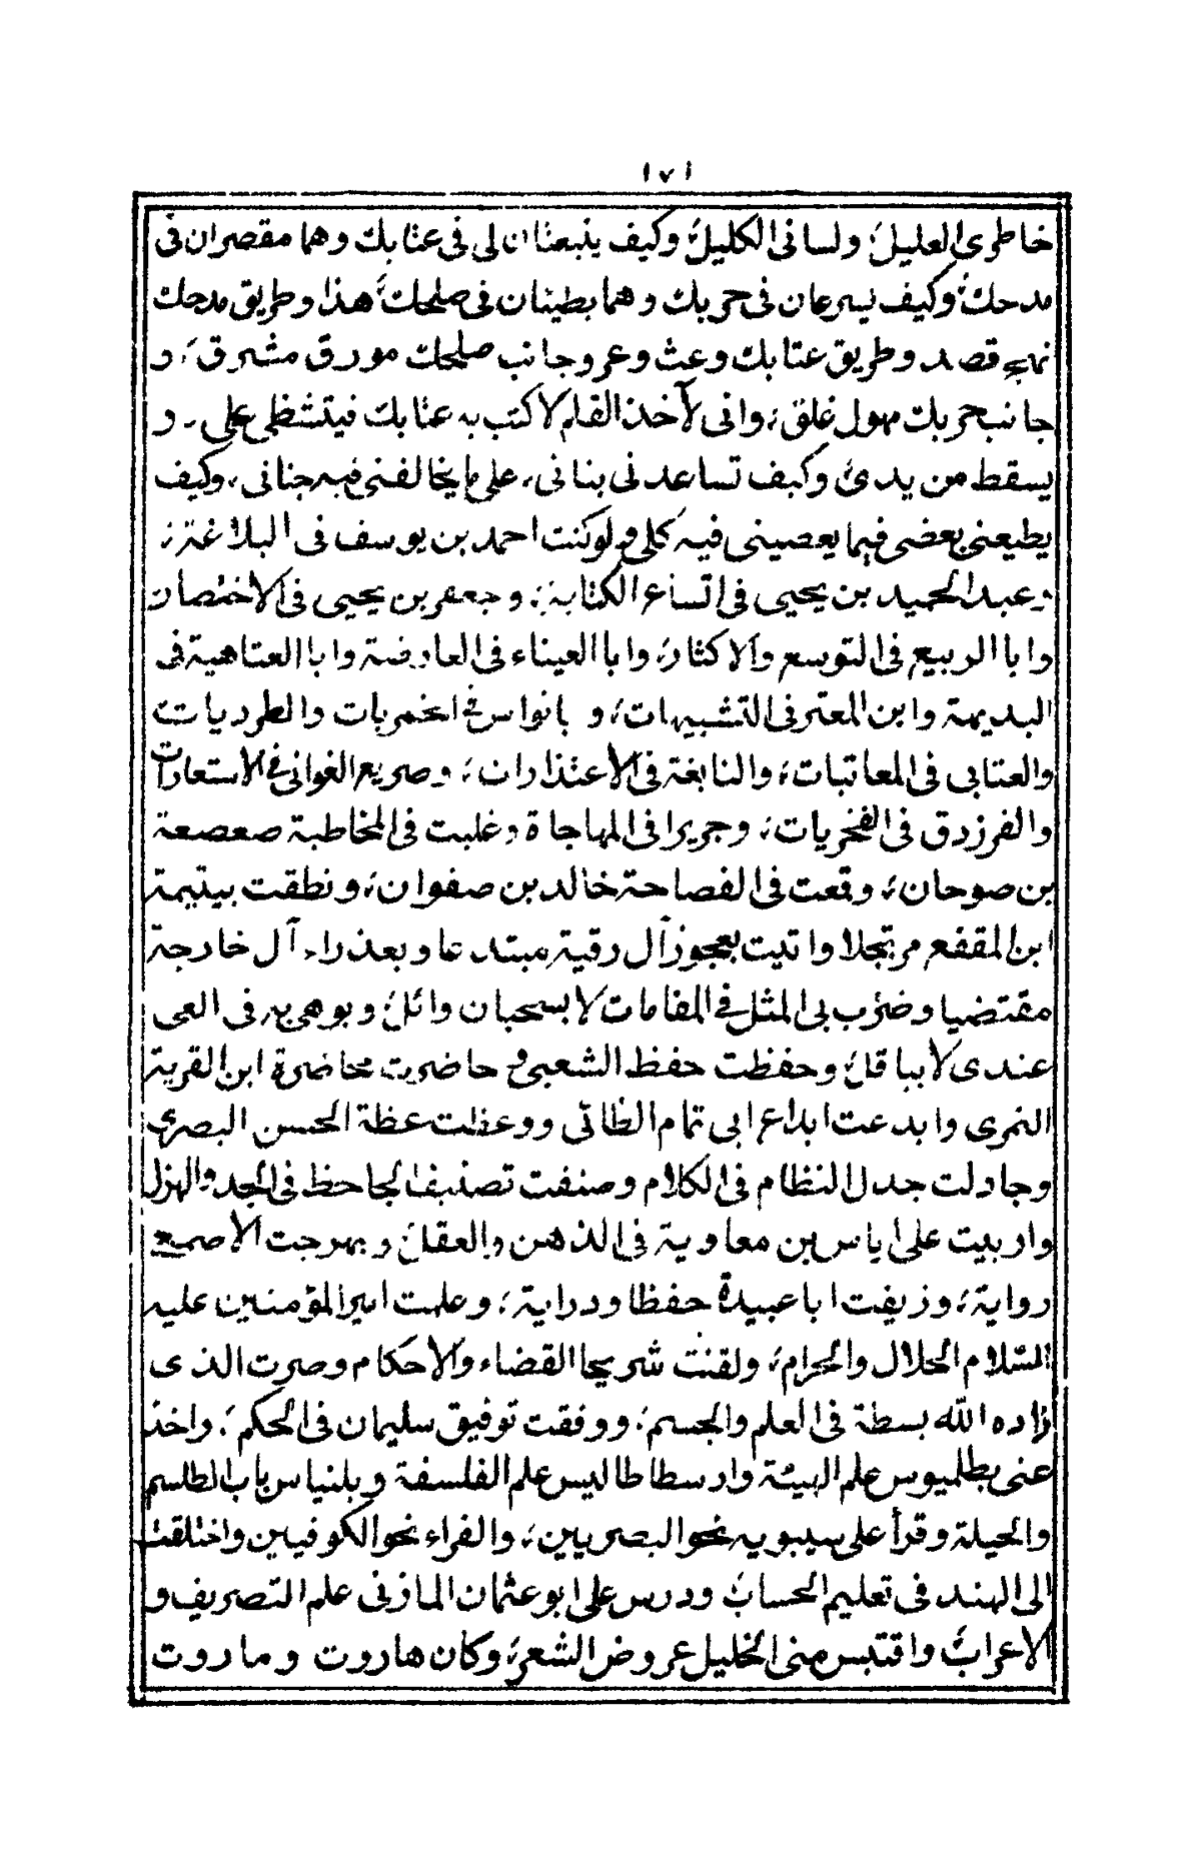 ١٧١
خاطرى العليل، ولسانى الكليل، وكيف ينبعثان لى فى عتابك وهما مقصران فى
مدحك، وكيف يسرعان فى حربك وهما بطيئان فى صلحك، هذا وطريق مدحك
نهج قصد وطريق عتابك وعث وعر وجانب صلحك مورق مشرق، و
جانب حربك مهول غلق، وانى لآخذ القلم لاكتب به عتابك فيتشظى على، و
يسقط من يدى وكيف تساعدنى بنانى، على ما يخالفنى فيه جنانى، وكيف
يطيعنى بعضى فيما يعصينى فيه كلى ولو كنت احمد بن يوسف فى البلاغة،
وعبد الحميد بن يحيى فى اتساع الكتابة، وجعفر بن يحيى فى الاختصار
وابا الربيع فى التوسع والاكثار، وابا العيناء فى العارضة وابا العتاهية فى
البديهة وابن المعتز فى التشبيهات، و بانواس فى الخمريات والطرديات
والعتابى فى المعاتبات، والنابغة فى الاعتذارات، وصريع الغوانى فى الاستعارات
والفرزدق فى الفخريات، وجريرا فى المهاجاة وغلبت فى المخاطبة صعصعة
بن صوحان، وقمعت فى الفصاحة خالد بن صفوان، ونطقت بيتيمة
ابن المقفع مرتجلا واتيت بعجوز آل رقية مبتدعا وبعذراء آل خارجة
مقتضيا وضرب بى المثل فى المقامات لا بسحبان وائل، وبوهى به فى العى
عندى لا بباقل، وحفظت حفظ الشعبى و حاضرت محاضرة ابن القرية
النمرى وابدعت ابداع ابى تمام الطائى ووعظت عظة الحسن البصرى
وجادلت جدل النظام فى الكلام وصنفت تصنيف الجاحظ فى الجد والهزل
واربيت على اياس بن معاوية فى الذهن والعقل، وبهرجت الاصمعى
رواية، وزيفت ابا عبيدة حفظا ودراية، وعلمت امير المؤمنين عليه
السّلام الحلال والحرام، ولقنت شريحا القضاء والاحكام وصرت الذى
زاده الله بسطة فى العلم والجسم، ووفقت توفيق سليمان فى الحكم، واخذ
عنى بطلميوس علم الهيئة وارسطاطاليس علم الفلسفة وبلنياس باب الطلسم
والحيلة وقرأ على سيبويه نحو البصريين، والفراء نحو الكوفيين واختلفت
الى الهند فى تعليم الحساب ودرس على ابو عثمان المازنى علم التصريف و
الاعراب، واقتبس منى الخليل عروض الشعر، وكان هاروت وماروت